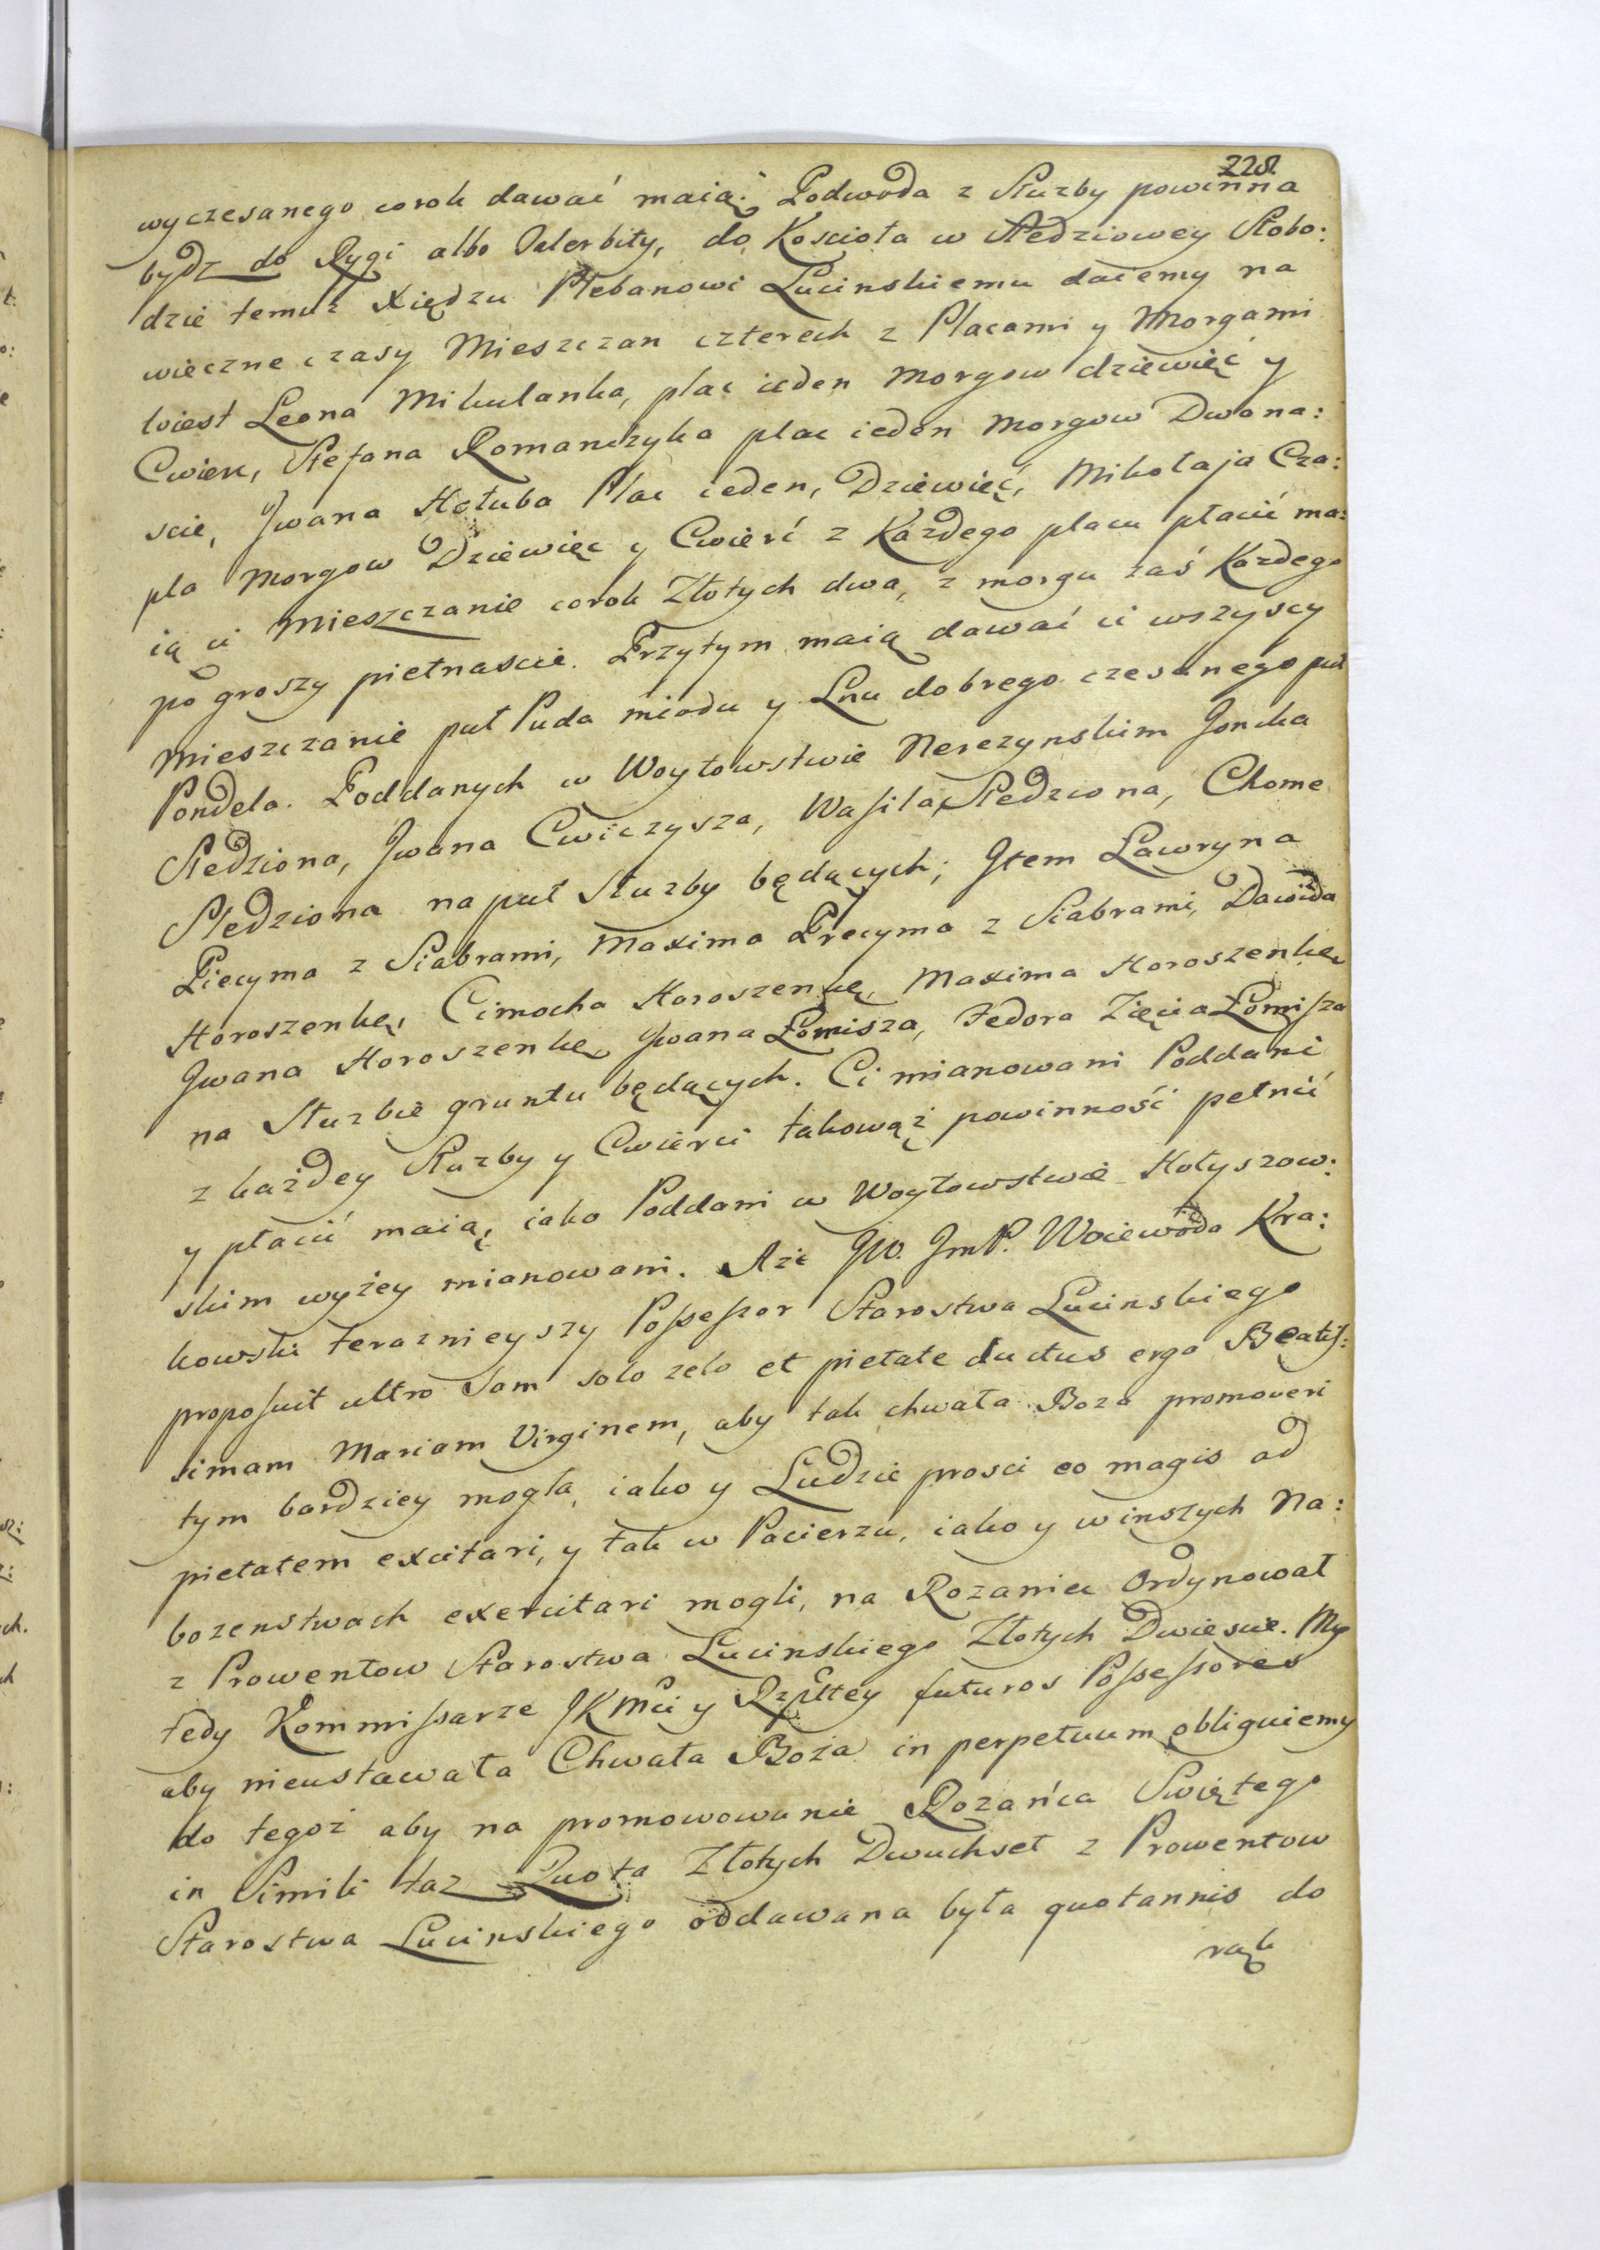 228
wyczesanego corok dawać maią. Podwoda z Służby powinna
bydz do Rygi albo Valerbity, do Kościoła w Śledziowey Słobo:
dzie temuz Xiędzu Plebanowi Lucinskiemu daiemy na
wieczne czasy Mieszczan czterech z Placami y Morgami
to iest Leona Mikulanka, plac ieden Morgow dziewięć y
Cwierc, Stefana Romanczyka plac ieden Morgow Dwana:
scie, Jwana Hołuba Plac ieden, Dziewięć, Mikołaja Cza:
pla Morgow Dziewięc y Cwierć z Każdego placu płacić ma:
ią ci Mieszczanie corok Złotych dwa, z morgu zaś Kazdego
po groszy pietnascie. Przytym maią dawać ci wszyscy
Mieszczanie puł Puda miodu y Lnu dobrego czesanego puł
Pondela. Poddanych w Woytowstwie Nerezynskim Joncka
Sledziona, Jwana Cwiczysza, Wasila Sledziona, Chome
Sledziona na puł Służby będących; Jtem Ławryna
Piecyma z Siabrami, Maxima Precyma z Siabrami, Dawida
Horoszenkę, Cimocha Horoszenkę, Maxima Horoszenkę
Jwana Horoszenkę Jwana Łomisza, Fedora Zięcia Łomisza
na Służbie gruntu będących. Ci mianowani Poddani
z każdey Służby y Cwierci takowąż powinność pełnić
y płacić maią, iako Poddani w Woytowstwie Hołyszow:
skim wyżey mianowani. Aże JW. JmP. Woiewoda Kra:
kowski teraznieyszy Possessor Starostwa Lucinskiego
proposuit ultro sam solo zelo et pietate ductus ergo Beatis:
simam Mariam Virginem, aby tak chwała Boza promoveri
tym bardziey mogła, iako y Ludzie prosci eo magis ad
pietatem excitari, y tak w Pacierzu, iako y w inszych Na:
bozenstwach exercitari mogli, na Rozaniec Ordynował
z Prowentow Starostwa Lucinskiego Złotych Dwiescie. My
tedy Kommissarze JKMci y Rzpltey futuros Possessores
aby nieustawała Chwała Boża in perpetuum obliguiemy
do tegoż aby na promowowanie Rozańca Swiętego
in Simili taz Quota Złotych Dwuchset z Prowentow
Starostwa Lucinskiego oddawana była quotannis do
rąk